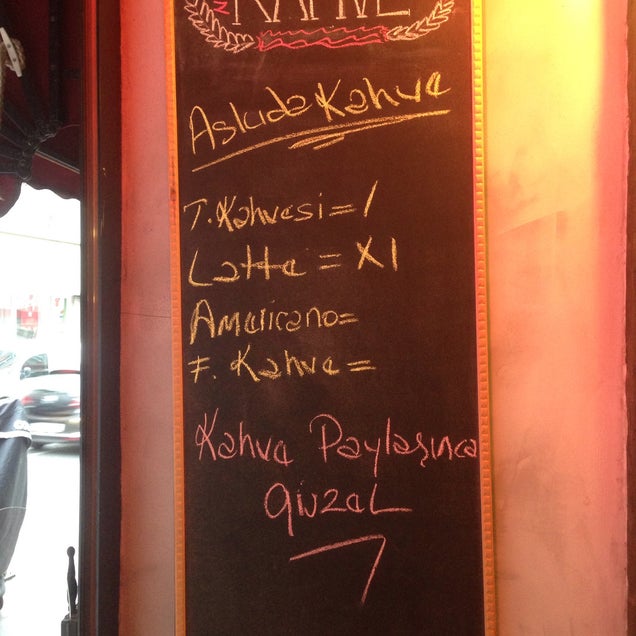 KAHVE
Askıda Kahve
T. Kahvesi = /
Latte = XI
Americano =
F. Kahve =
Kahve Paylaşınca
güzel